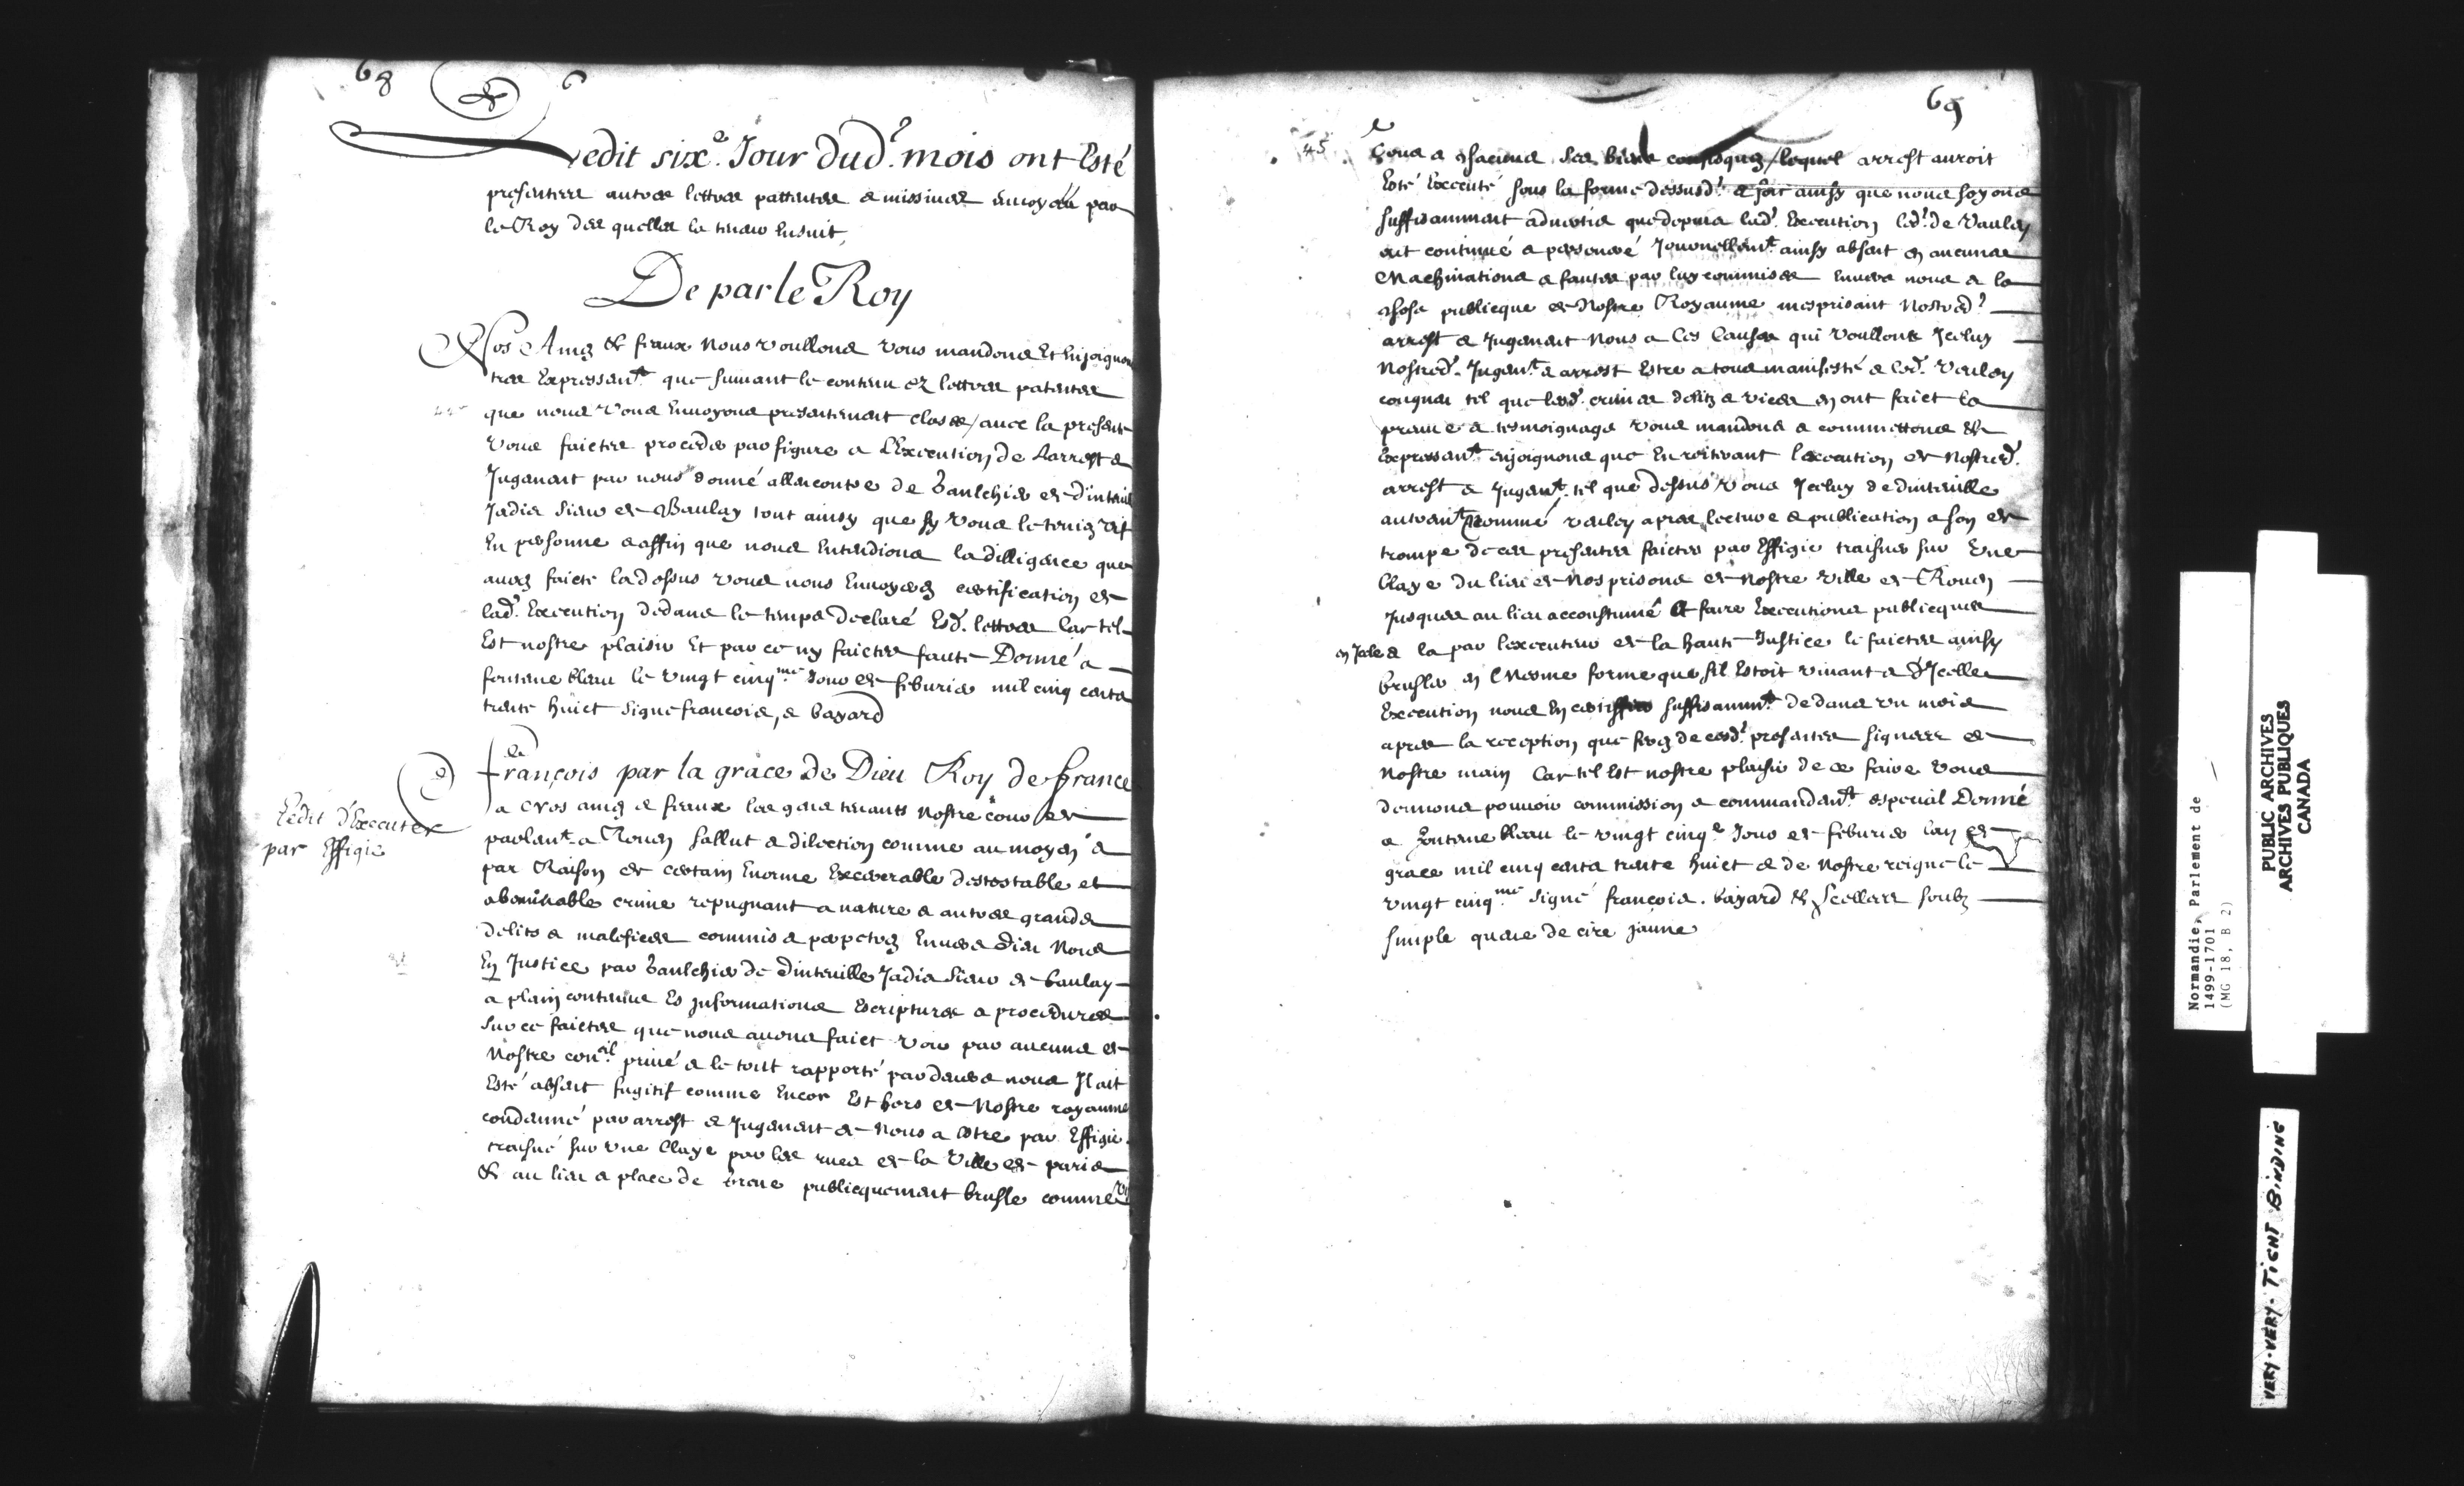 68
Ledit sixe. Jour dud. mois ont Esté
presentees autres lettres pattentes & missives envoyéés par
le Roy des quelles la teneur Ensuit
De par le Roy
Nos Amez & feaux Nous voullons vous mandons Et Enjoignons
tres Expressemt. que suivant le contenu ez lettres patentes
que nous vous Envoyons presentement closes / avec la presente
vous faictes proceder par figure a L'Execution de Larrest &
Jugement par nous donné allencontre de Gaulchier de Dinteuil
Jadis Sieur de Vaulay tout ainsy que sy vous le teniez vif
En personne & affin que nous Entendions la dilligence que
aurez faicte la dessus vous nous Envoyerez certification de
lad. Execution dedans le temps declaré Esd. lettres Car tel
Est nostre plaisir Et par ce ny faictes faute Donné a
fontainebleau le vingt cinqme Jour de febvrier mil cinq cents
trente huict signé francois, & bayard
Ledit d'Executer
par Effigie
françois par la grace de Dieu Roy de france
a Nos amez & feaux les gens tenants Nostre cour de
parlemt. a Rouen sallut & dilection comme au moyen &
par Raison de certain Enorme Execerable destestable et
abominable crime repugnant a nature & autres grands
delits & malefices commis & perpetrez Envers Dieu Nous
En Justice par Gaulchier de Dinteuille Jadis Sieur de Vaulay
a plain contenus Es Informations Escriptures & procedures
sur ce faictes que nous avons faict voir par aucuns de
Nostre conel. privé & le tout rapporté par devers nous Il ait
Esté absent fugitif comme Encor Est hors de Nostre royaume
condamné par arrest & Jugement de Nous a Estre par Effigie
traisné sur vne Claye par les rues de la Ville de paris
& au lieu & place de Greve publicquement brusle comme
69
45
tous & chacuns ses biens confisquez / lequel arrest auroit
Esté Executé sous la forme dessusd. & soit ainsy que nous soyons
suffisamment advertis que depuis lad. Execution led. de Vaulay
ait continué & perseveré Journellemt. ainsy absent en aucunes
Machinations & fautes par luy commises Envers nous & la
chose publicque de Nostre Royaume mesprisant Nostred.
arrest & Jugement Nous a Ces Causes qui voullons Iceluy
Nostred. Jugemt. & arrest Estre a tous manifesté & led. Vaulay
congneu tel que lesd. crimes delitz & vices en ont faict la
preuve & tesmoignage vous mandons & commettons &
Expressemt. enjoignons que En reiterant lexecution de Nostred.
arrest & Jugemt. tel que dessus vous Iceluy de dinteuille
autremt. nommé vaulay apres lecture & publication a son de
trompe de ces presentes faictes par Effigie traisner sur Une
Claye du lieu de Nos prisons de Nostre ville de Rouen
Jusques au lieu accoustumé a faire Executions publicques
en Icelle & la par lexecuteur de la haute Justice le faictes ainsy
brusler en Mesme forme que sil Estoit vivant & d'Icelle
Execution nous En certiffier suffisammt. dedans vn mois
apres la reception que ferez de cesd. presentes signees de
Nostre main Car tel Est nostre plaisir de ce faire vous
donnons pouvoir commission & commandemt. especial Donné
a fontainebleau le vingt cinqe Jour de febvrier lan de
grace mil cinq cents trente huict & de Nostre reigne le
vingt cinqme signé francois. bayard & scellees soubz
simple queue de cire jaune
Normandie, Parlement de
1499-1701
(MG 18, B 2)
PUBLIC ARCHIVES
ARCHIVES PUBLIQUES
CANADA
VERY-VERY-TIGHT BINDING